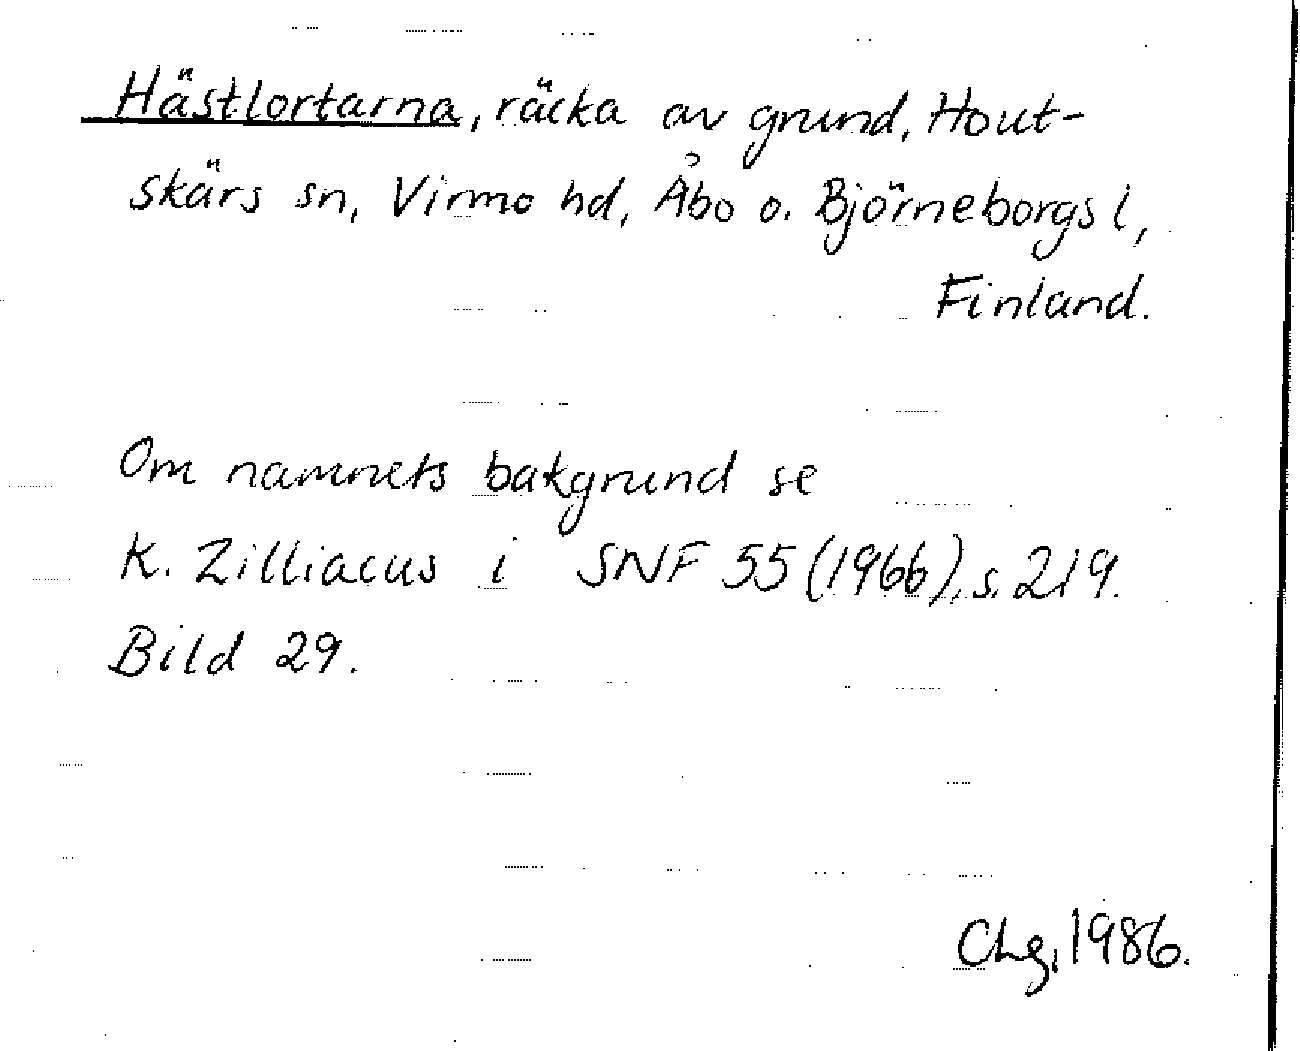 Hästlortarna, räcka av grund, Hout-
skärs sn, Virmo hd, Åbo o. Björneborgs l,
Finland.
Om namnets bakgrund se
K. Zilliacus i SNF 55 (1966), s. 219.
Bild 29.
Chg, 1986.